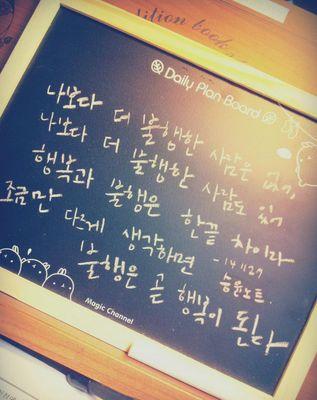 ilion book
Daily Plan Board
나보다 더 불행한 사람은 없고,
나보다 더 불행한 사람도 있어
행복과 불행은 한끝 차이라
조금만 다르게 생각하면
불행은 곧 행복이 된다
- 141127
승윤노트.
Magic Channel